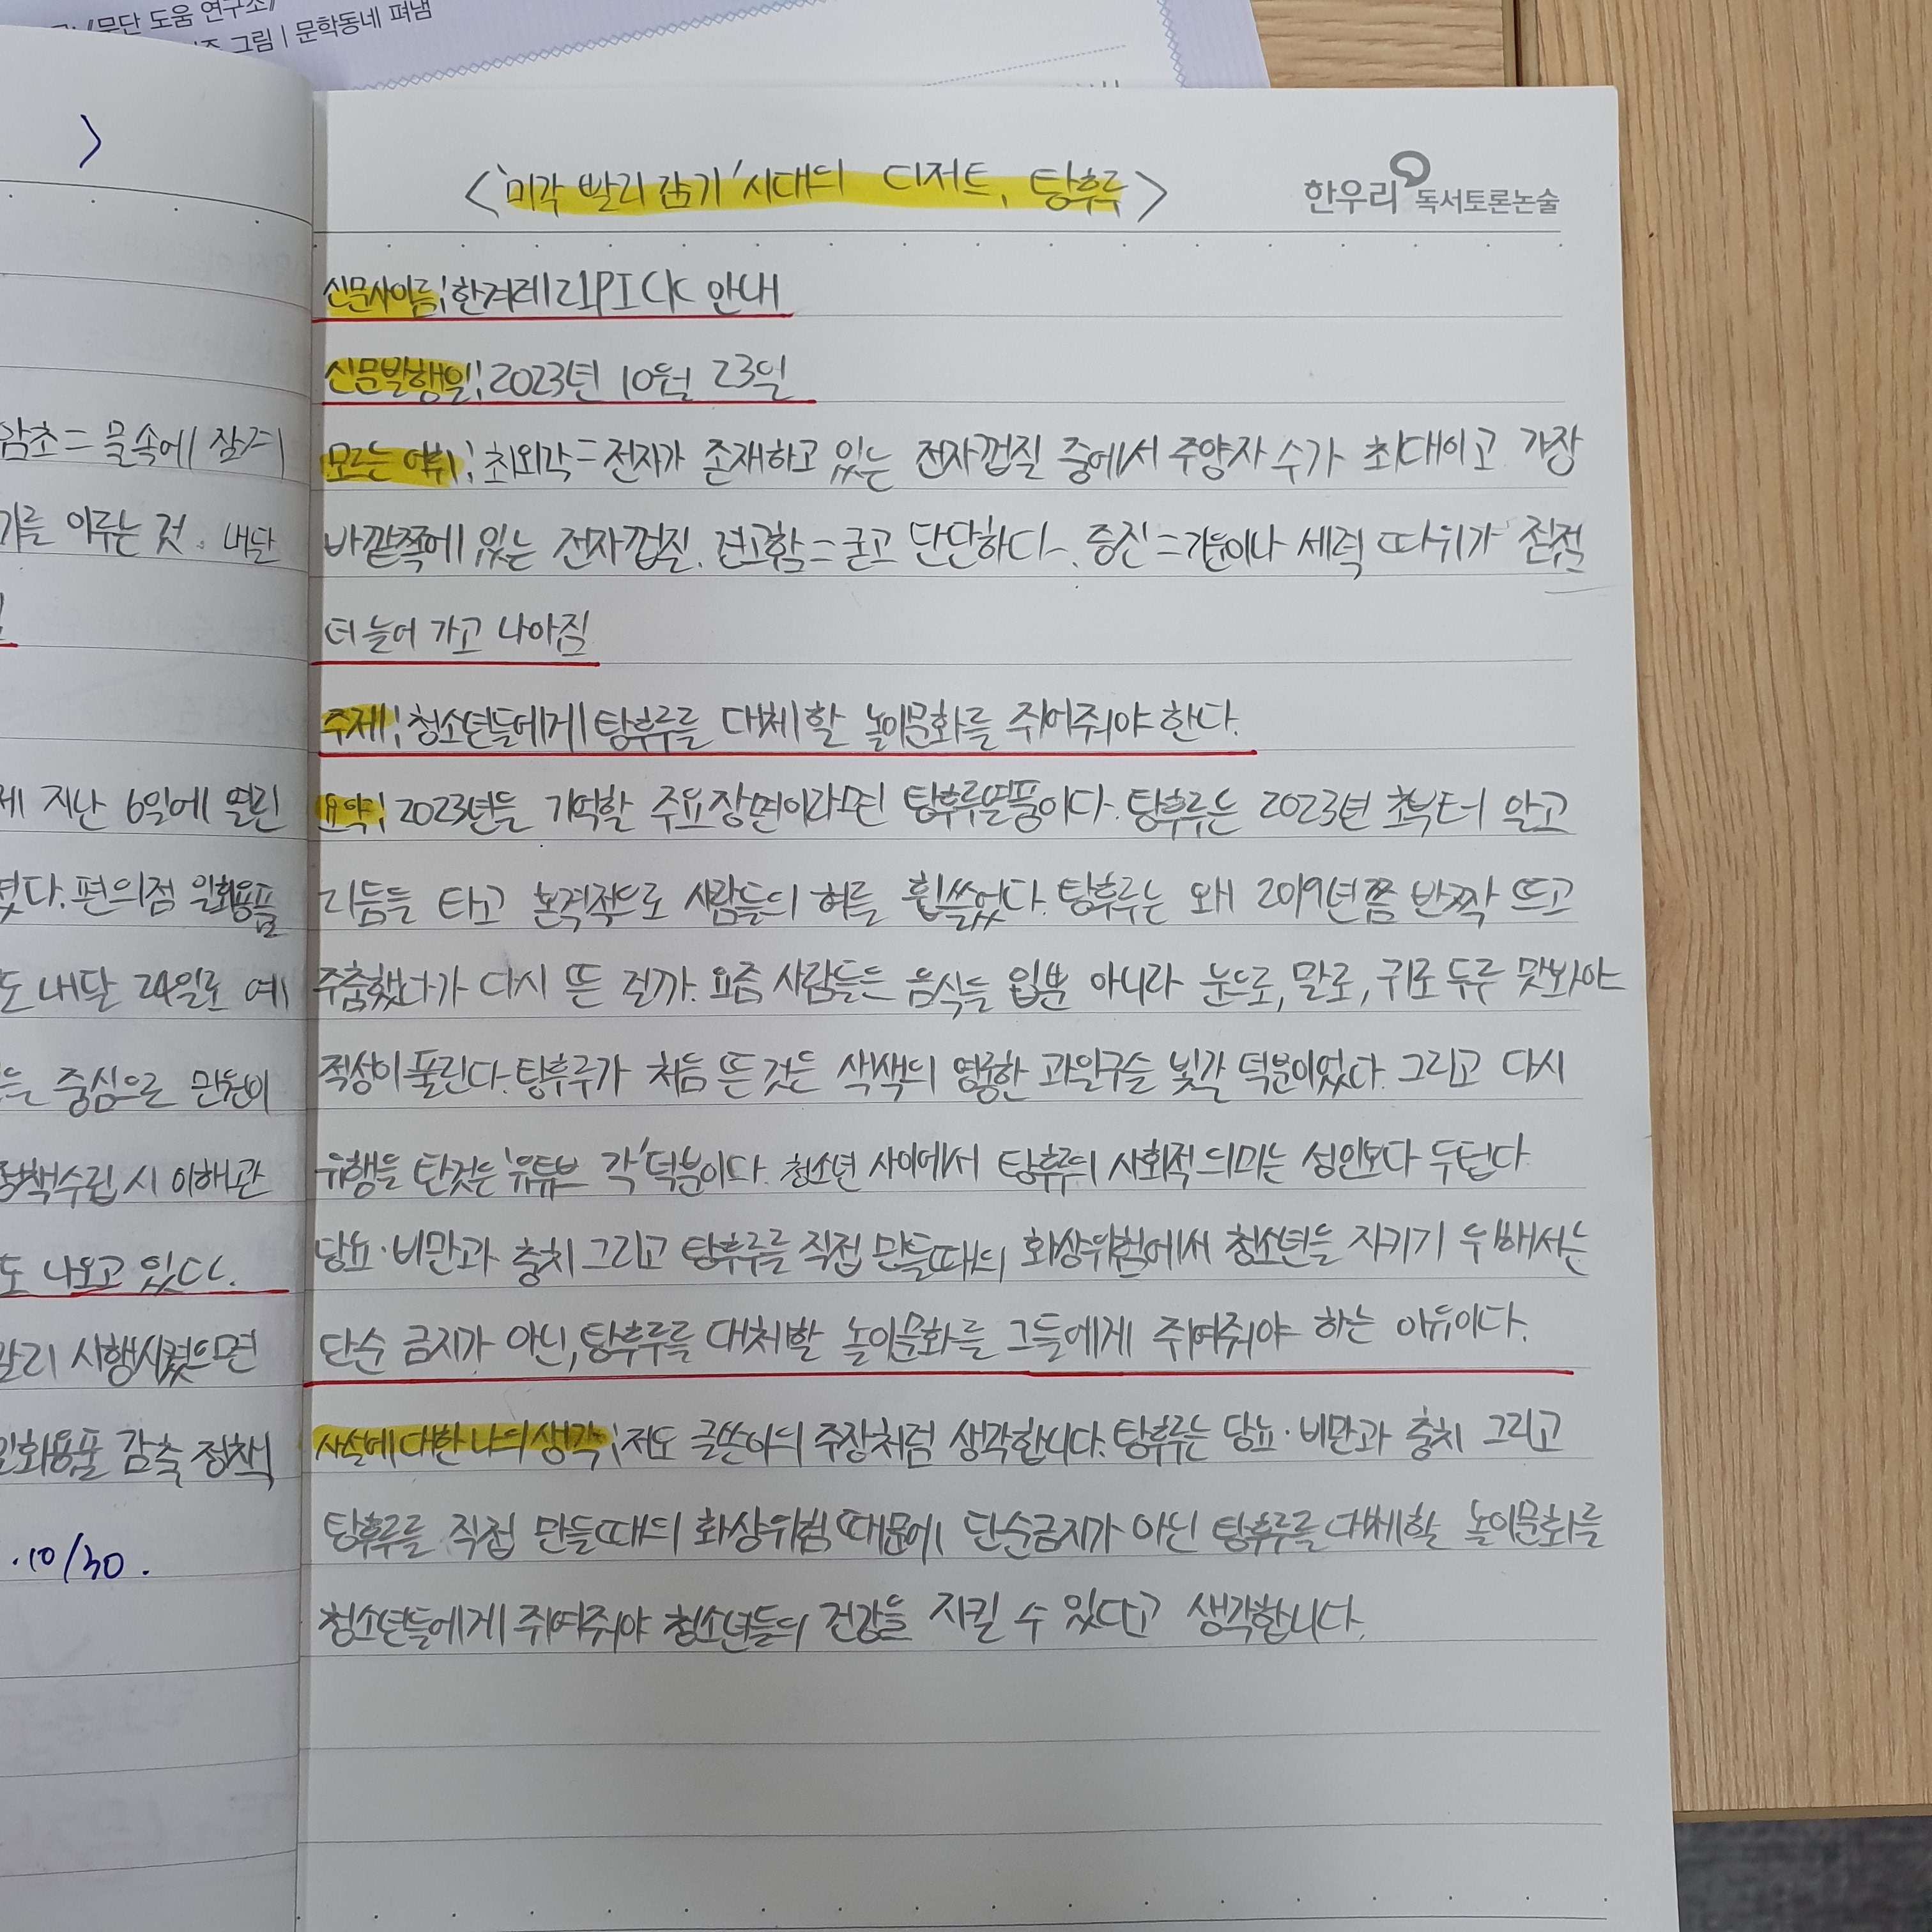 무단 도움 연구소
그림 | 문학동네 펴냄
<'미각 빨리 감기' 시대의 디저트, 탕후루>
한우리 독서토론논술
신문사이름; 한겨레 안내
신문발행일; 2023년 10월 23일
모르는 어휘; 최외각=전자가 존재하고 있는 전자껍질 중에서 주양자 수가 최대이고 가장
바깥쪽에 있는 전자껍질. 견고함=굳고 단단하다. 증진=기운이나 세력 따위가 점점
더 늘어 가고 나아짐
주제; 청소년들에게 탕후루를 대체할 놀이문화를 쥐어줘야 한다.
요약; 2023년을 기억할 주요 장면이라면 탕후루열풍이다. 탕후루는 2023년 초부터 알고
리듬을 타고 본격적으로 사람들의 혀를 휩쓸었다. 탕후루는 왜 2019년쯤 반짝 뜨고
주춤했다가 다시 뜬 걸까. 요즘 사람들은 음식을 입뿐 아니라 눈으로, 말로, 귀로 두루 맛봐야
적성이 풀린다. 탕후루가 처음 뜬 것은 색색의 영롱한 과일구슬 빛깔 덕분이었다. 그리고 다시
유행을 탄것은 '유튜브 각' 덕분이다. 청소년 사이에서 탕후루의 사회적 의미는 성인보다 두텁다
당뇨·비만과 충치 그리고 탕후루를 직접 만들때의 화상위험에서 청소년을 지키기 위해서는
단순 금지가 아닌, 탕후루를 대체할 놀이문화를 그들에게 쥐여줘야 하는 이유이다.
사설에 대한 나의 생각; 저도 글쓴이의 주장처럼 생각합니다. 탕후루는 당뇨·비만과 충치 그리고
탕후루를 직접 만들때의 화상위험 때문에 단순금지가 아닌 탕후루를 대체할 놀이문화를
청소년들에게 쥐여줘야 청소년들의 건강을 지킬 수 있다고 생각합니다.
>
암초=물속에 잠겨
기를 이루는 것. 내단
제 지난 6일에 열린
졌다. 편의점 일회용품
도 내달 24일로 예
는 중심으로 만원이
정책수립 시 이해관
도 나오고 있다.
빨리 시행시켰으면
일회용품 감축 정책
.10/30.